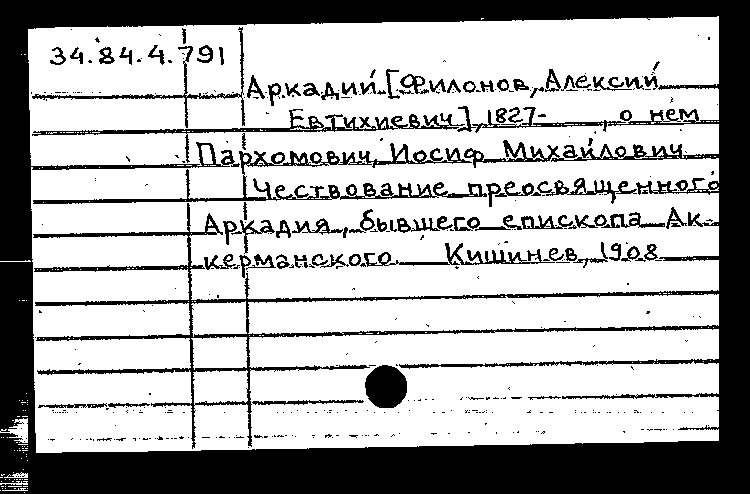 34.84.4.791
Аркадий [Филонов, Алексий
Евтихиевич], 1827- , о нем
Пархомович, Иосиф Михайлович
Чествование преосвященного
Аркадия, бывшего епископа Ак-
керманского. Кишинев, 1908